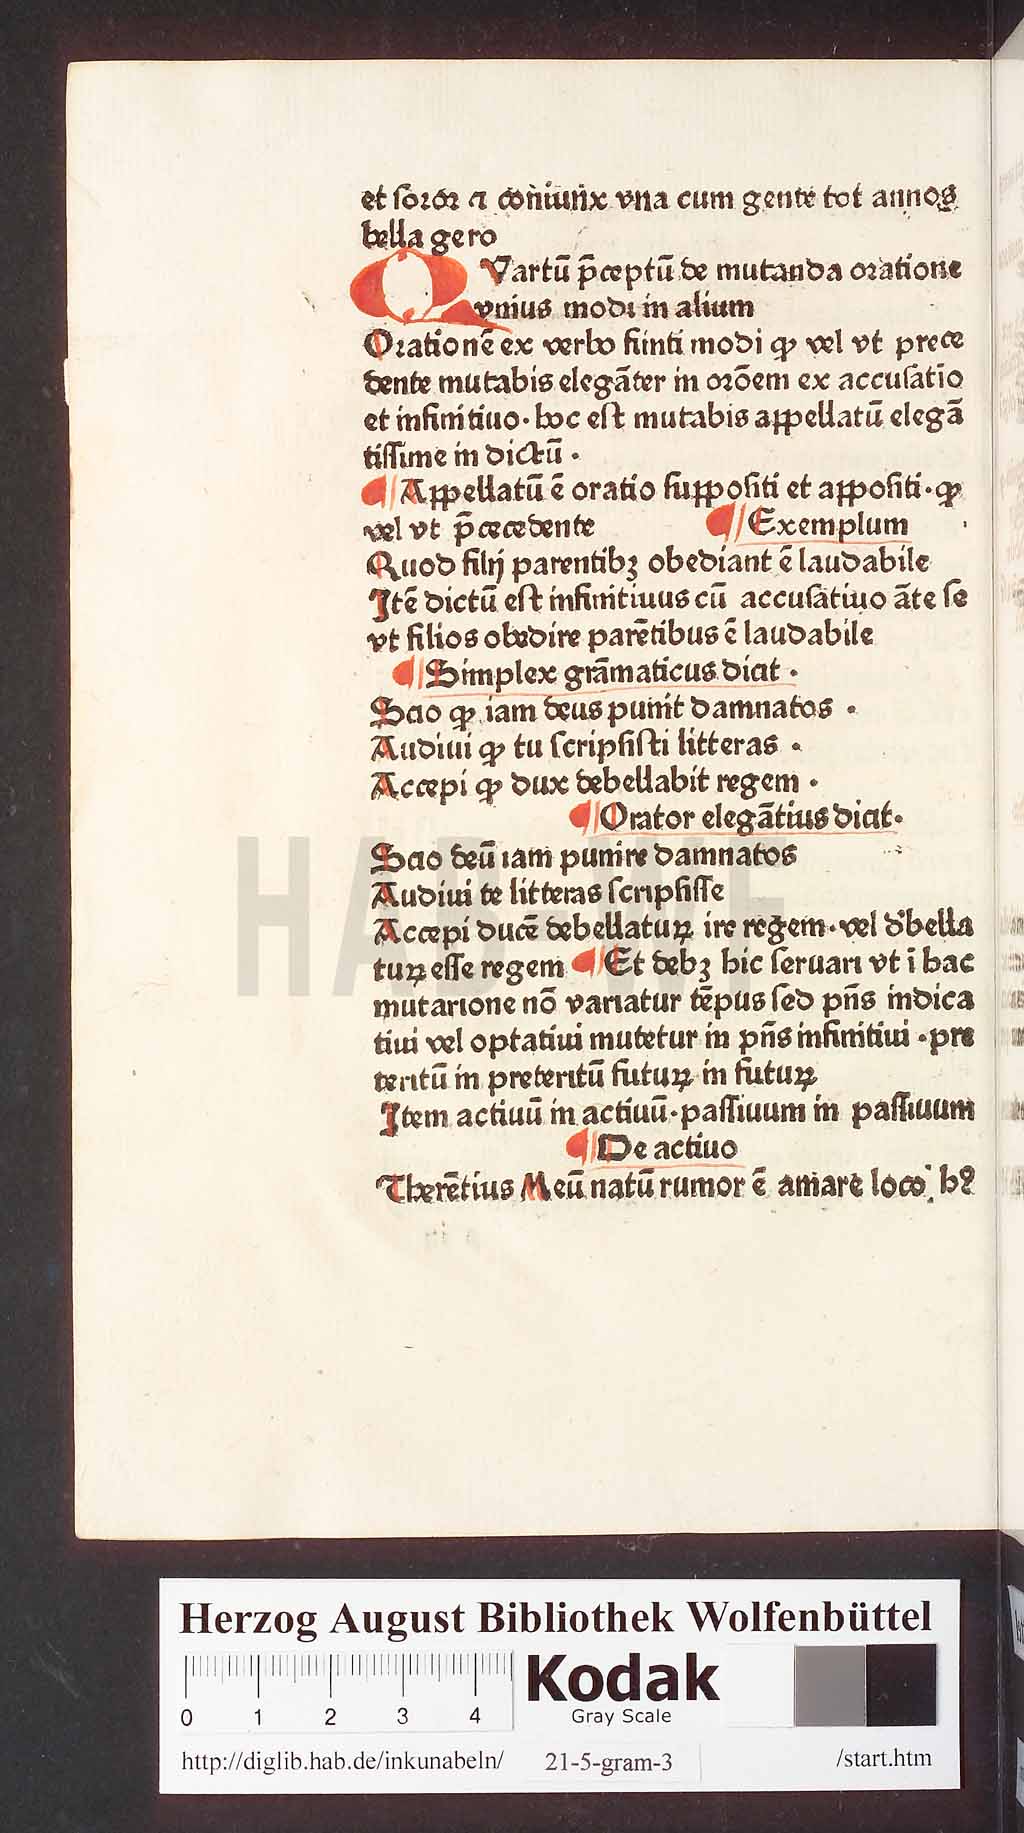 et soror ⁊ cōniunx vna cum gente tot annos
bella gero
Quartū p̄ceptū de mutanda oratione
vnius modi in alium
Orationē ex verbo finiti modi ꝙ vel vt prece
dente mutabis elegāter in orōem ex accusatio
et infinitiuo· hoc est mutabis appellatū elegā
tissime in dictū ·
¶ Appellatū ē oratio suppositi et appositi· ꝙ
vel vt p̄cedente ¶ Exemplum
Quod filij parentibꝫ obediant ē laudabile
Itē dictū est infinitiuus cū accusatiuo āte se
vt filios obedire parētibus ē laudabile
¶ Simplex grāmaticus dicit ·
Scio ꝙ iam deus punit damnatos ·
Audiui ꝙ tu scripsisti litteras ·
Accepi ꝙ dux debellabit regem ·
¶ Orator elegātius dicit·
Scio deū iam punire damnatos
Audiui te litteras scripsisse
Accepi ducē debellatuꝝ ire regem· vel d'bella
tuꝝ esse regem ¶ Et debꝫ hic seruari vt ī hac
mutatione nō variatur tēpus sed pn̄s indica
tiui vel optatiui mutetur in pn̄s infinitiui · pre
teritū in preteritū futuꝝ in futuꝝ
Item actiuū in actiuū· passiuum in passiuum
¶ De actiuo
Therētius Meū natū rumor ē amare loco
HAB WF
Herzog August Bibliothek Wolfenbüttel
0 1 2 3 4
Kodak
Gray Scale
http://diglib.hab.de/inkunabeln/ 21-5-gram-3 /start.htm